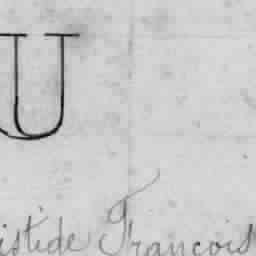 U
istide François